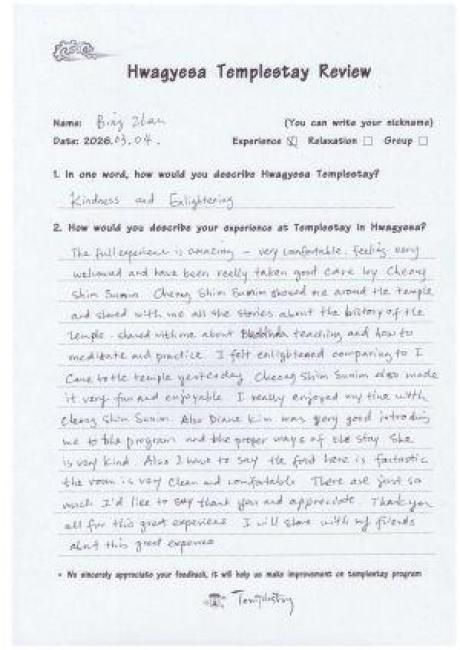 Hwagyesa Templestay Review
Name: Bing Zhan (You can write your nickname)
Date: 2026.03.04. Experience ☑ Relaxation ☐ Group ☐
1. In one word, how would you describe Hwagyesa Templestay?
Kindness and Enlightering
2. How would you describe your experience at Templestay in Hwagyesa?
The full experience is amazing - very comfortable, feeling very
welcomed and have been really taken good care by Cheong
Shim Sunim. Cheong Shim Sunim showed me around the temple
and shared with me all the stories about the history of the
temple. shared with me about teaching and how to
meditate and practice. I felt enlightened comparing to I
came to the temple yesterday. Cheong Shim Sunim also made
it very fun and enjoyable. I really enjoyed my time with
Cheong Shim Sunim. Also Diane Kim was very good introding
me to the program and the proper ways of the stay. She
is very kind. Also I have to say the food here is fantastic
the room is very clean and comfortable. There are just so
much I'd like to say thank you and appreciate. Thank you
all for this great experience. I will share with my friends
about this great experience
• We sincerely appreciate your feedback, it will help us make improvement on templestay program
Templestay